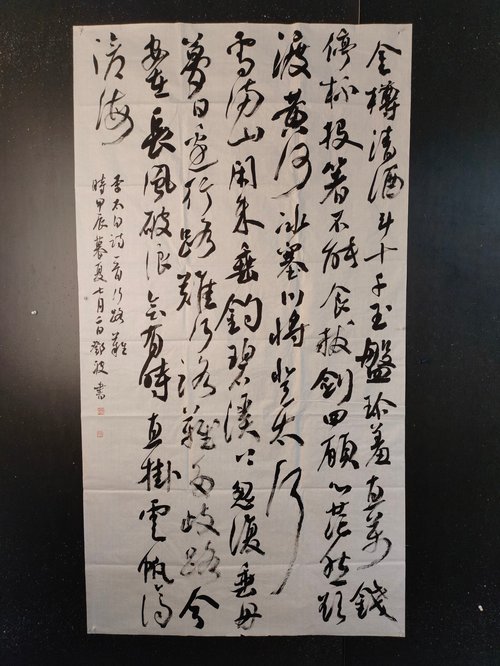 金樽清酒斗十千玉盤珍羞直萬錢
停杯投箸不能食拔劍四顧心茫然欲
渡黃河冰塞川將登太行
雪滿山閑來垂釣碧溪上忽復乘舟
夢日邊行路難行路難多歧路今
安在長風破浪會有時直掛雲帆濟
滄海
李太白詩一首行路難
時甲辰暮夏七月二日鄧書